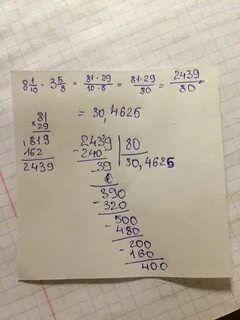 8 1/10 · 3 5/8 = 81 · 29 / 10 · 8 = 81 · 29 / 80 = 2439 / 80
= 30,4625
× 81
29
819
162
2439
2439 | 80
- 240 | 30,4625
39
0
390
- 320
500
- 480
200
- 160
400